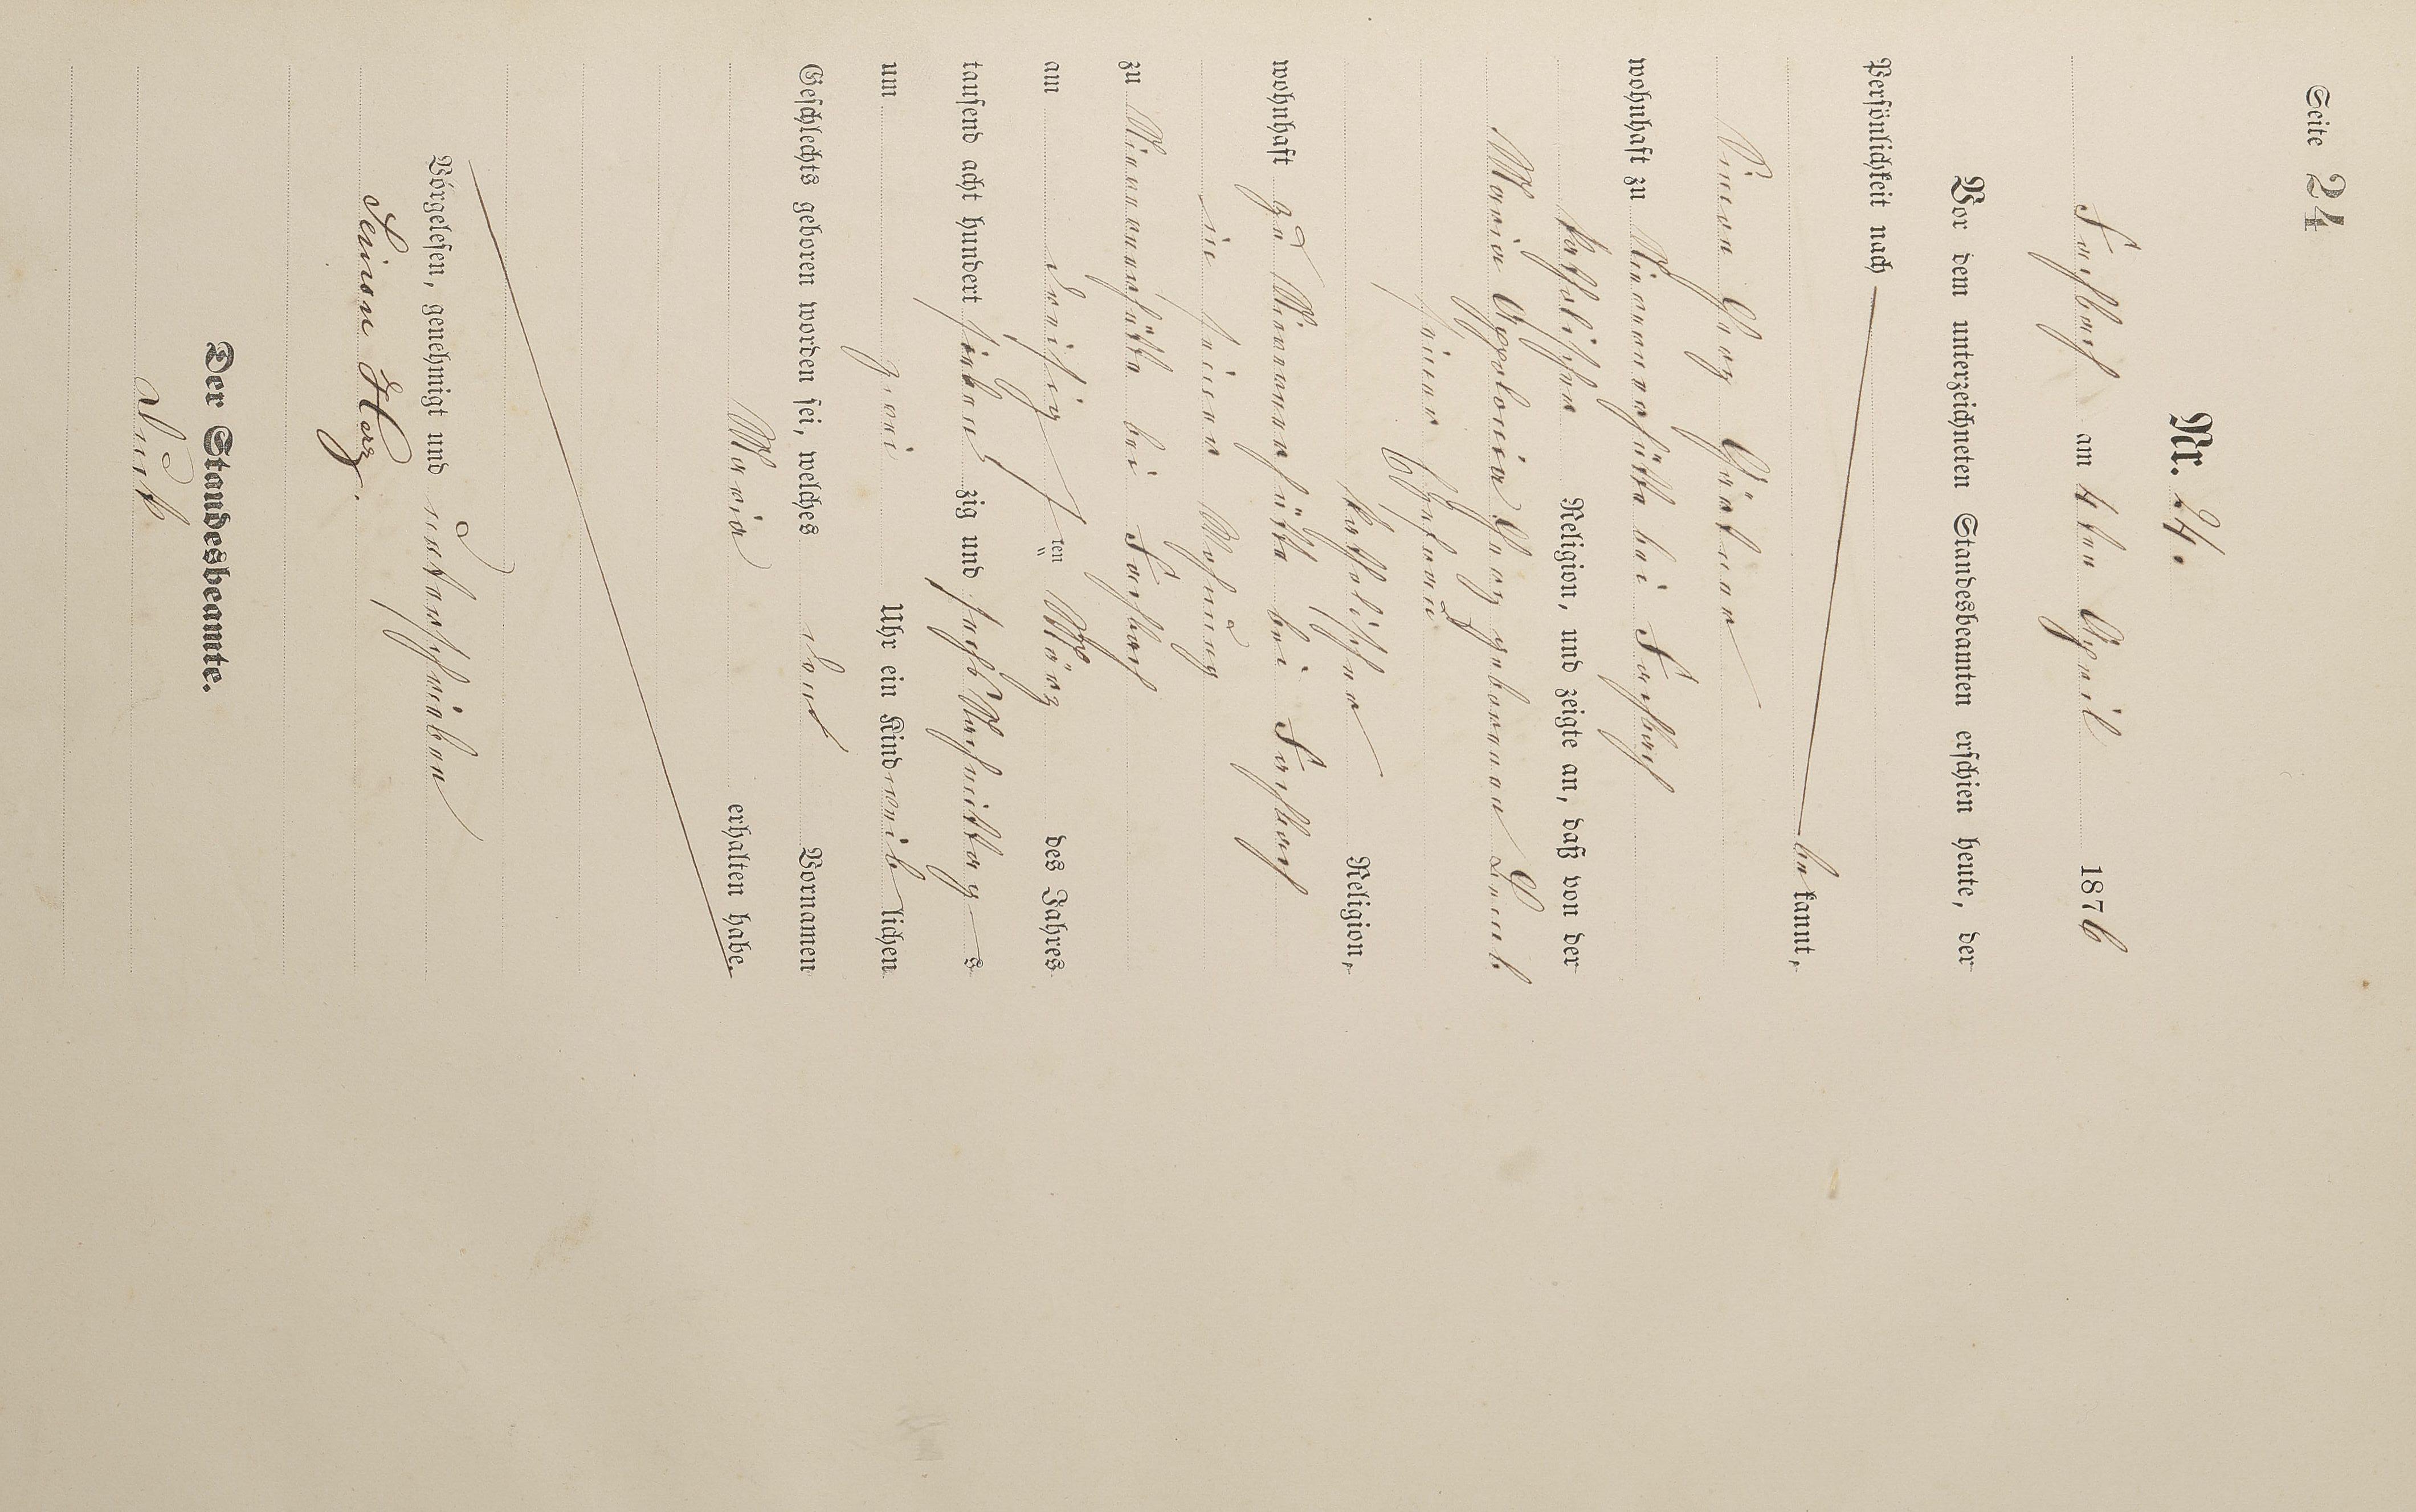 Seite 24
Nr. 24.
Fischbach am 4ten April 1876
Vor dem unterzeichneten Standesbeamten erschien heute, der
Persönlichkeit nach
be kannt,
Simon Herz
wohnhaft zu bei Fischbach
katholischer Religion, und zeigte an, daß von der
Maria Appolonia Herz geborenen
seiner Ehefrau
katholischer Religion,
wohnhaft zu bei Fischbach
in seiner Wohnung
zu bei Fischbach
am dreißigsten März des Jahres
tausend acht hundert sieben zig und sechs Nachmittag s
um zwei Uhr ein Kind weib lichen
Geschlechts geboren worden sei, welches den Vornamen
Maria
erhalten habe.
Vorgelesen, genehmigt und unterschrieben
Simon Herz.
Der Standesbeamte.